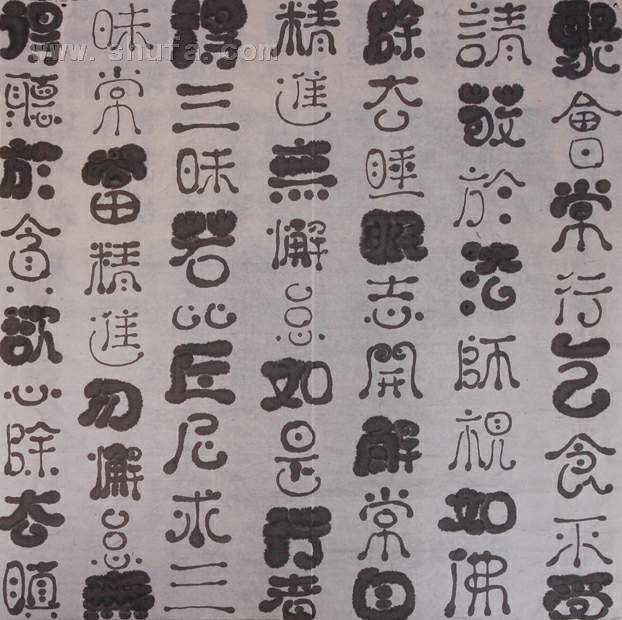 聚會常行乞食不受
請敬於法師視如佛
除去睡眠志開解常自
精進無懈怠如是行者
得三昧若比丘尼求三
昧常當精進勿懈怠無
得聽於貪欲心除去瞋
www.shufa.com